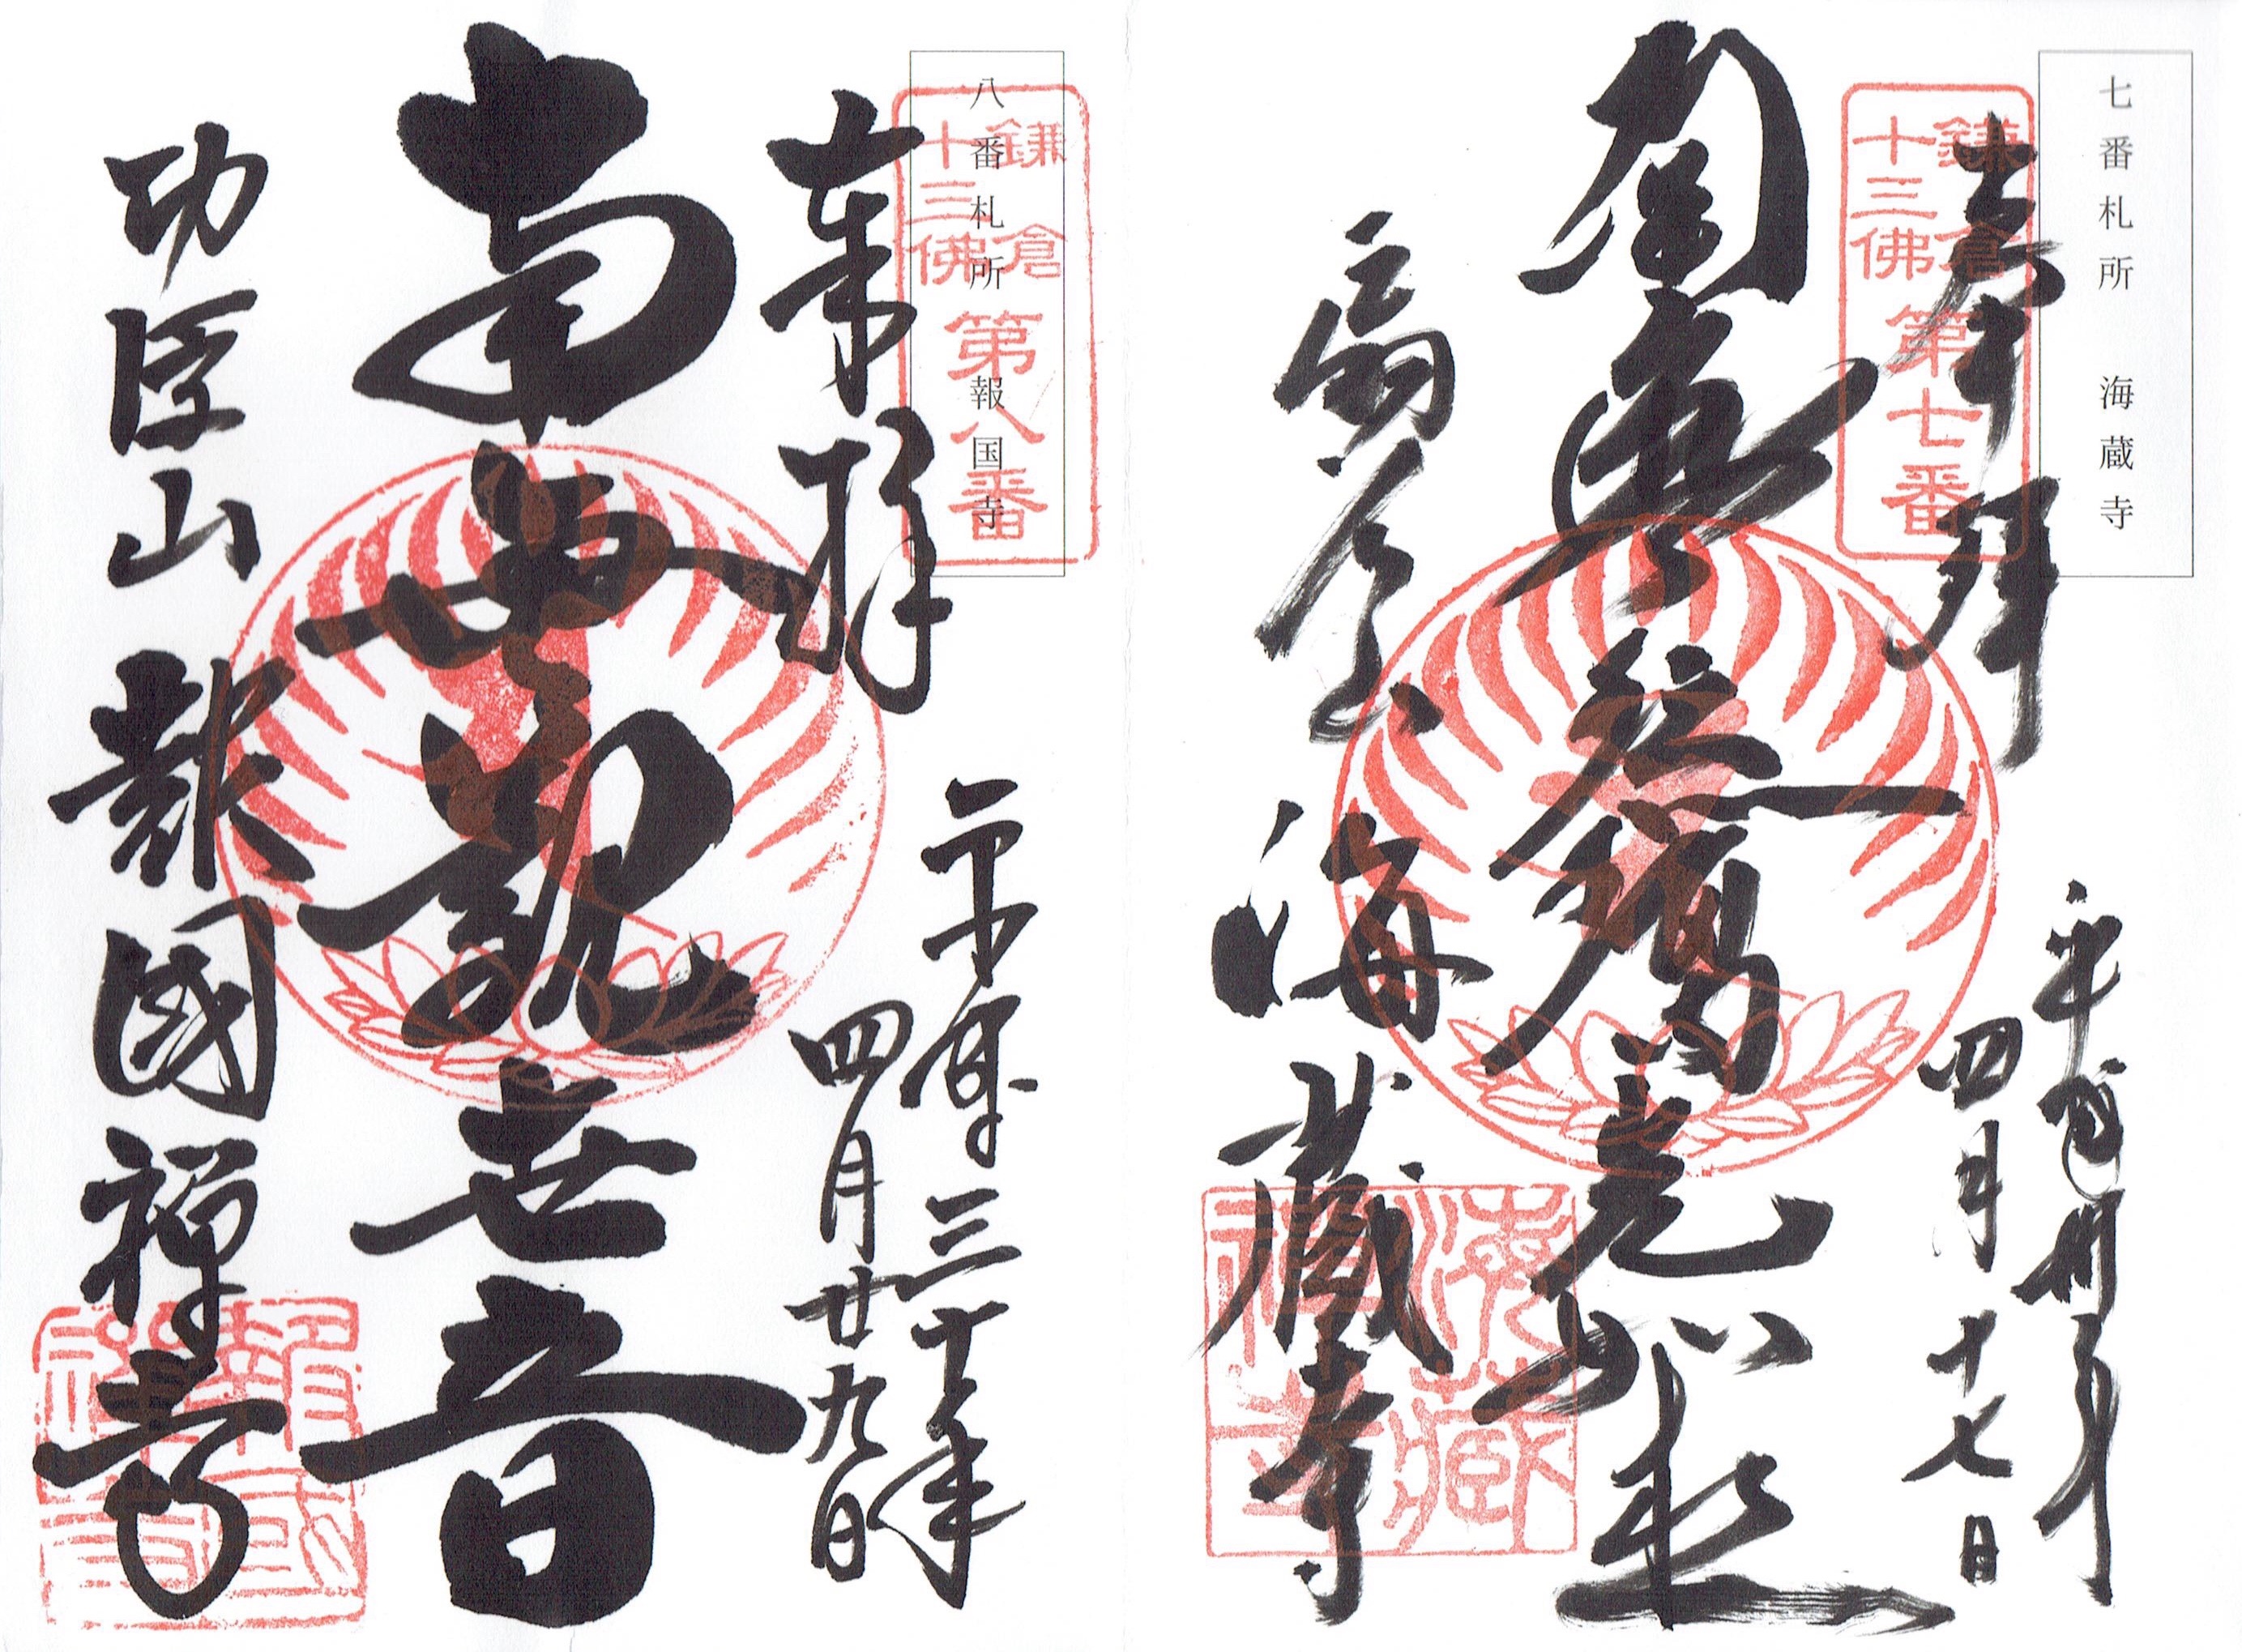 七番札所　海蔵寺
鎌倉
十三佛
第七番
奉拝
平成卅年
四月十七日
南無
光如来
扇谷山　海蔵寺
海藏
禅寺
八番札所　報国寺
鎌倉
十三佛
第八番
奉拝
平成三十年
四月廿九日
南無観世音
功臣山　報國禅寺
報國
禅寺